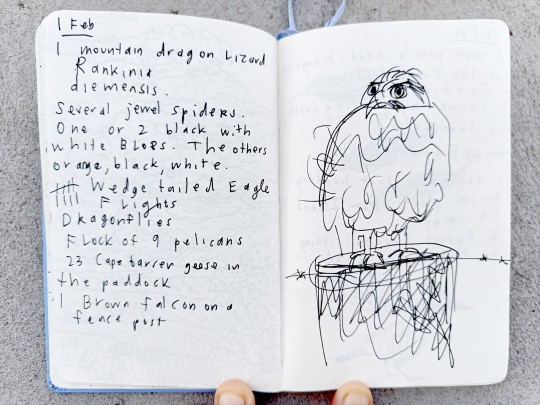 1 Feb
1 mountain dragon Lizard
Rankinia
diemensis.
Several jewel spiders.
One or 2 black with
white BLOBS. The others
orange, black, white.
Wedge tailed Eagle
FLights
Dragonflies
FLock of 9 pelicans
23 Cape barren geese in
the paddock
1 Brown falcon on a
fence post